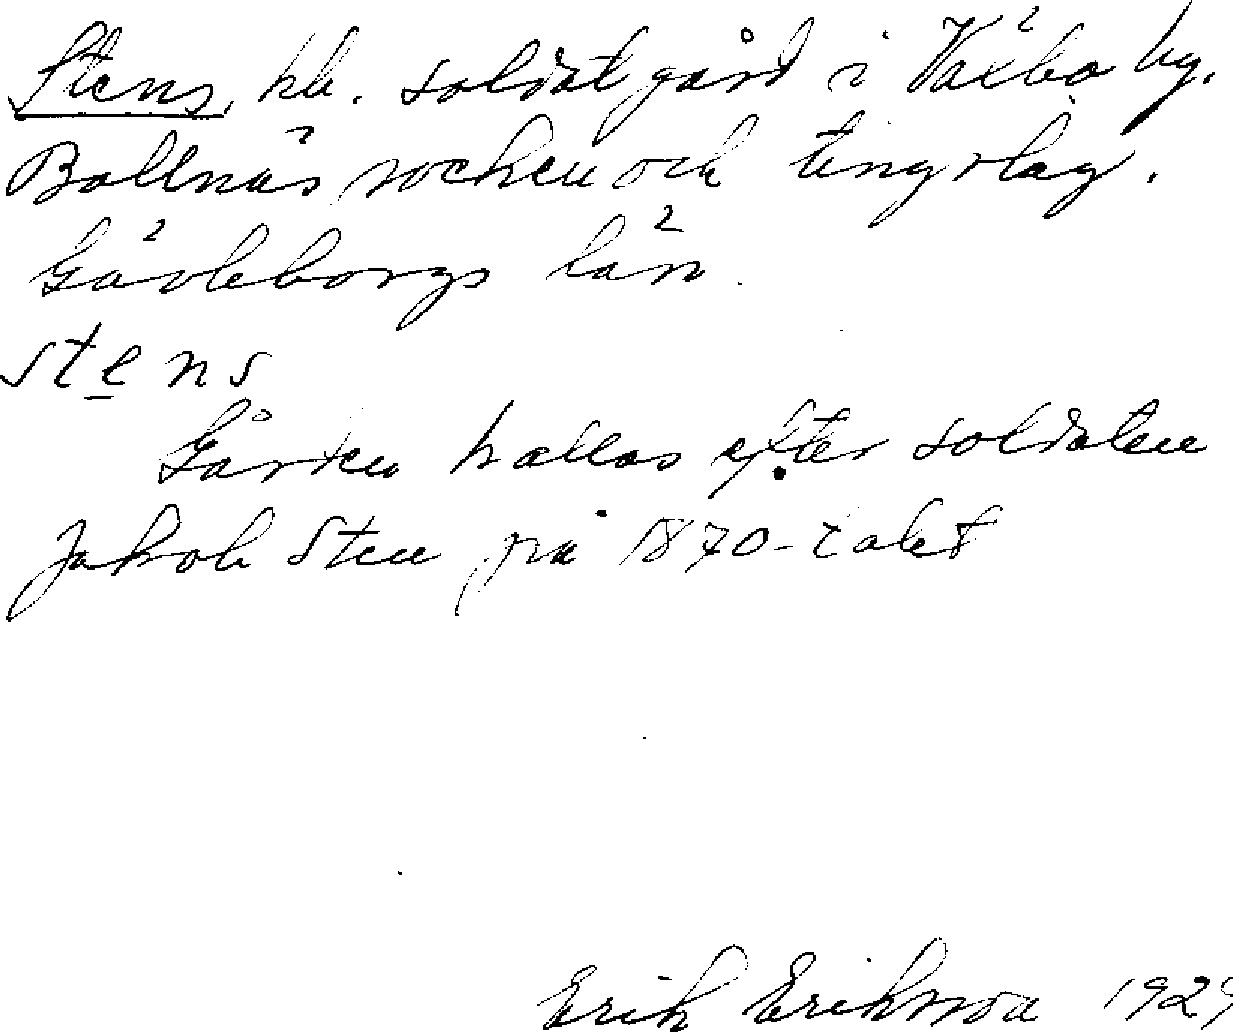 Stens, kh. soldatgård i Växbo by.
Bollnäs socken och tingslag.
Gävleborgs län.
stens
Gården kallas efter soldaten
Jakob Sten på 1870-talet
Erik Eriksson